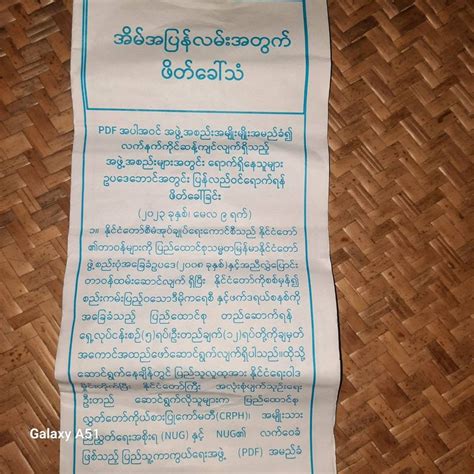 အိမ်အပြန်လမ်းအတွက်
ဖိတ်ခေါ်သံ
PDF အပါအဝင် အဖွဲ့အစည်းအမျိုးမျိုးအမည်ခံ၍
လက်နက်ကိုင်ဆန့်ကျင်လျက်ရှိသည့်
အဖွဲ့အစည်းများအတွင်း ရောက်ရှိနေသူများ
ဥပဒေဘောင်အတွင်း ပြန်လည်ဝင်ရောက်ရန်
ဖိတ်ခေါ်ခြင်း
(၂၀၂၃ ခုနှစ်၊ မေလ ၉ ရက်)
၁။ နိုင်ငံတော်စီမံအုပ်ချုပ်ရေးကောင်စီသည် နိုင်ငံတော်
၏တာဝန်များကို ပြည်ထောင်စုသမ္မတမြန်မာနိုင်ငံတော်
ဖွဲ့စည်းပုံအခြေခံဥပဒေ(၂၀၀၈ ခုနှစ်)နှင့်အညီလွှဲပြောင်း
တာဝန်ထမ်းဆောင်လျက် ရှိပြီး နိုင်ငံတော်ကိုစစ်မှန်၍
စည်းကမ်းပြည့်ဝသောဒီမိုကရေစီ နှင့်ဖက်ဒရယ်စနစ်ကို
အခြေခံသည့် ပြည်ထောင်စု တည်ဆောက်ရန်
ရှေ့လုပ်ငန်းစဉ်(၅)ရပ်၊ဦးတည်ချက်(၁၂)ရပ်တို့ကိုချမှတ်
အကောင်အထည်ဖော်ဆောင်ရွက်လျက်ရှိပါသည်။ထိုသို့
ဆောင်ရွက်နေချိန်တွင် ပြည်သူလူထုအား နိုင်ငံရေးဝါဒ
နိုင်ငံတော်ကြီး အလုံးစုံပျက်သုဉ်းရေး
ဦးတည် ဆောင်ရွက်လိုသူများက ပြည်ထောင်စု
လွှတ်တော်ကိုယ်စားပြုကော်မတီ(CRPH)၊ အမျိုးသား
ညီညွတ်ရေးအစိုးရ (NUG) နှင့် NUG၏ လက်ဝေခံ
ဖြစ်သည့် ပြည်သူ့ကာကွယ်ရေးအဖွဲ့ (PDF) အမည်ခံ
Galaxy A51